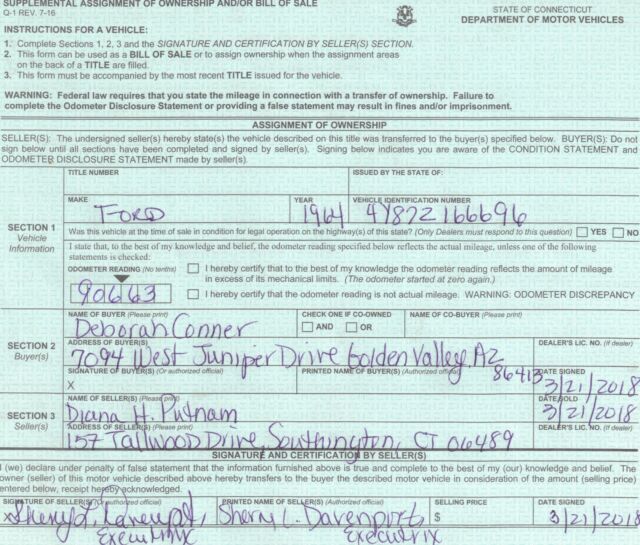 SUPPLEMENTAL ASSIGNMENT OF OWNERSHIP AND/OR BILL OF SALE
Q-1 REV. 7-16
STATE OF CONNECTICUT
DEPARTMENT OF MOTOR VEHICLES
INSTRUCTIONS FOR A VEHICLE:
1. Complete Sections 1, 2, 3 and the SIGNATURE AND CERTIFICATION BY SELLER(S) SECTION.
2. This form can be used as a BILL OF SALE or to assign ownership when the assignment areas
on the back of a TITLE are filled.
3. This form must be accompanied by the most recent TITLE issued for the vehicle.
WARNING: Federal law requires that you state the mileage in connection with a transfer of ownership. Failure to
complete the Odometer Disclosure Statement or providing a false statement may result in fines and/or imprisonment.
ASSIGNMENT OF OWNERSHIP
SELLER(S): The undersigned seller(s) hereby state(s) the vehicle described on this title was transferred to the buyer(s) specified below. BUYER(S): Do not
sign below until all sections have been completed and signed by seller(s). Signing below indicates you are aware of the CONDITION STATEMENT and
ODOMETER DISCLOSURE STATEMENT made by seller(s).
SECTION 1
Vehicle
Information
TITLE NUMBER
ISSUED BY THE STATE OF:
MAKE
YEAR
VEHICLE IDENTIFICATION NUMBER
FORD 1964 4Y87Z166696
Was this vehicle at the time of sale in condition for legal operation on the highway(s) of this state? (Only Dealers must respond to this question) YES NO
I state that, to the best of my knowledge and belief, the odometer reading specified below reflects the actual mileage, unless one of the following
statements is checked:
ODOMETER READING (No tenths)
90663
I hereby certify that to the best of my knowledge the odometer reading reflects the amount of mileage
in excess of its mechanical limits. (The odometer started at zero again.)
I hereby certify that the odometer reading is not actual mileage. WARNING: ODOMETER DISCREPANCY
SECTION 2
Buyer(s)
NAME OF BUYER (Please print)
Deborah Conner
CHECK ONE IF CO-OWNED
AND OR
NAME OF CO-BUYER (Please print)
ADDRESS OF BUYER(S)
7094 West Juniper Drive Golden Valley, AZ
86413
DEALER'S LIC. NO. (If dealer)
SIGNATURE OF BUYER(S) (Or authorized official)
X
PRINTED NAME OF BUYER(S) (Authorized official)
DATE SIGNED
3/21/2018
SECTION 3
Seller(s)
NAME OF SELLER(S) (Please print)
Diana H. Putnam
DATE SOLD
3/21/2018
ADDRESS OF SELLER(S) (Please print)
157 Tallwood Drive, Southington, CT 06489
DEALER'S LIC. NO. (If dealer)
SIGNATURE AND CERTIFICATION BY SELLER(S)
I (we) declare under penalty of false statement that the information furnished above is true and complete to the best of my (our) knowledge and belief. The
owner (seller) of this motor vehicle described above hereby transfers to the buyer the described motor vehicle in consideration of the amount (selling price)
entered below, receipt hereby acknowledged.
SIGNATURE OF SELLER(S) (Or authorized official)
x Sheryl L. Davenport,
Executrix
PRINTED NAME OF SELLER(S) (Authorized official)
Sheryl L. Davenport,
Executrix
SELLING PRICE
$
DATE SIGNED
3/21/2018